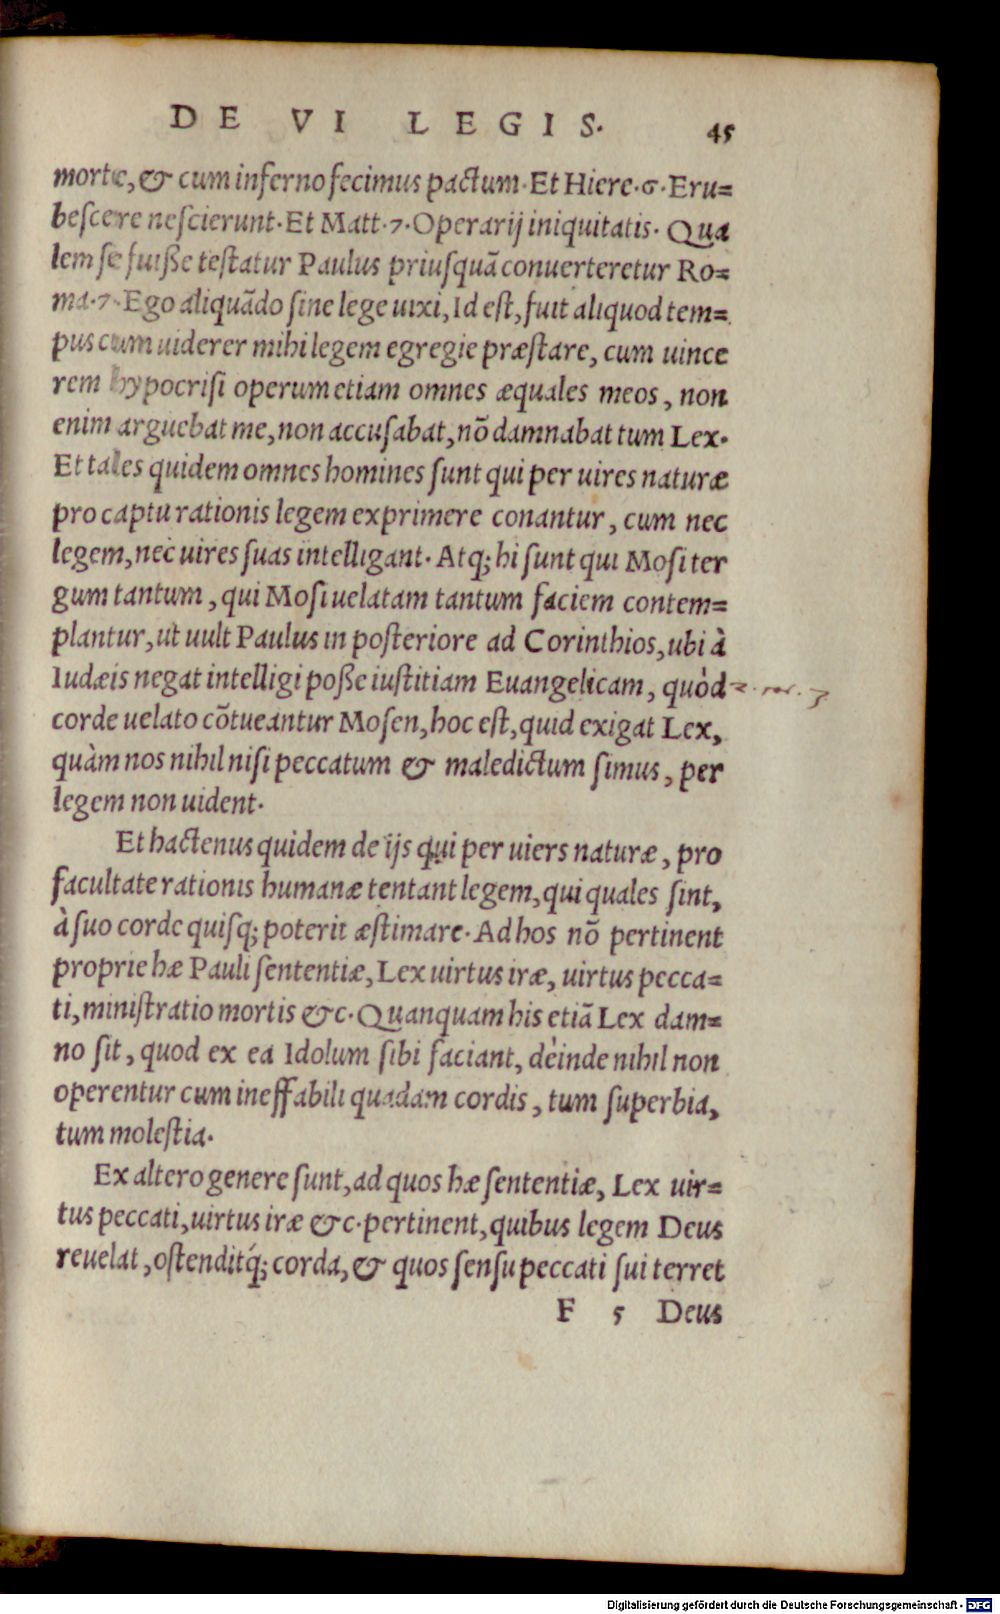 DE VI LEGIS. 45
morte, & cum inferno fecimus pactum. Et Hiere. 6. Eru=
bescere nescierunt. Et Matt. 7. Operarij iniquitatis. Qua
lem se fuiße testatur Paulus priusquā conuerteretur Ro=
ma. 7. Ego aliquādo sine lege uixi, Id est, fuit aliquod tem=
pus cum uiderer mihi legem egregie præstare, cum uince
rem hypocrisi operum etiam omnes æquales meos, non
enim arguebat me, non accusabat, nō damnabat tum Lex.
Et tales quidem omnes homines sunt qui per uires naturæ
pro captu rationis legem exprimere conantur, cum nec
legem, nec uires suas intelligant. Atq; hi sunt qui Mosi ter
gum tantum, qui Mosi uelatam tantum faciem contem=
plantur, ut uult Paulus in posteriore ad Corinthios, ubi à
Iudæis negat intelligi poße iustitiam Euangelicam, quòd
corde uelato cōtueantur Mosen, hoc est, quid exigat Lex,
quàm nos nihil nisi peccatum & maledictum simus, per
legem non uident.
Et hactenus quidem de ijs qui per uiers naturæ, pro
facultate rationis humanæ tentant legem, qui quales sint,
à suo corde quisq; poterit æstimare. Ad hos nō pertinent
proprie hæ Pauli sententiæ, Lex uirtus iræ, uirtus pecca=
ti, ministratio mortis &c. Quanquam his etiā Lex dam=
no sit, quod ex ea Idolum sibi faciant, dèinde nihil non
operentur cum ineffabili quadam cordis, tum superbia,
tum molestia.
Ex altero genere sunt, ad quos hæ sententiæ, Lex uir=
tus peccati, uirtus iræ &c. pertinent, quibus legem Deus
reuelat, ostenditq́; corda, & quos sensu peccati sui terret
F 5 Deus
Digitalisierung gefördert durch die Deutsche Forschungsgemeinschaft - DFG